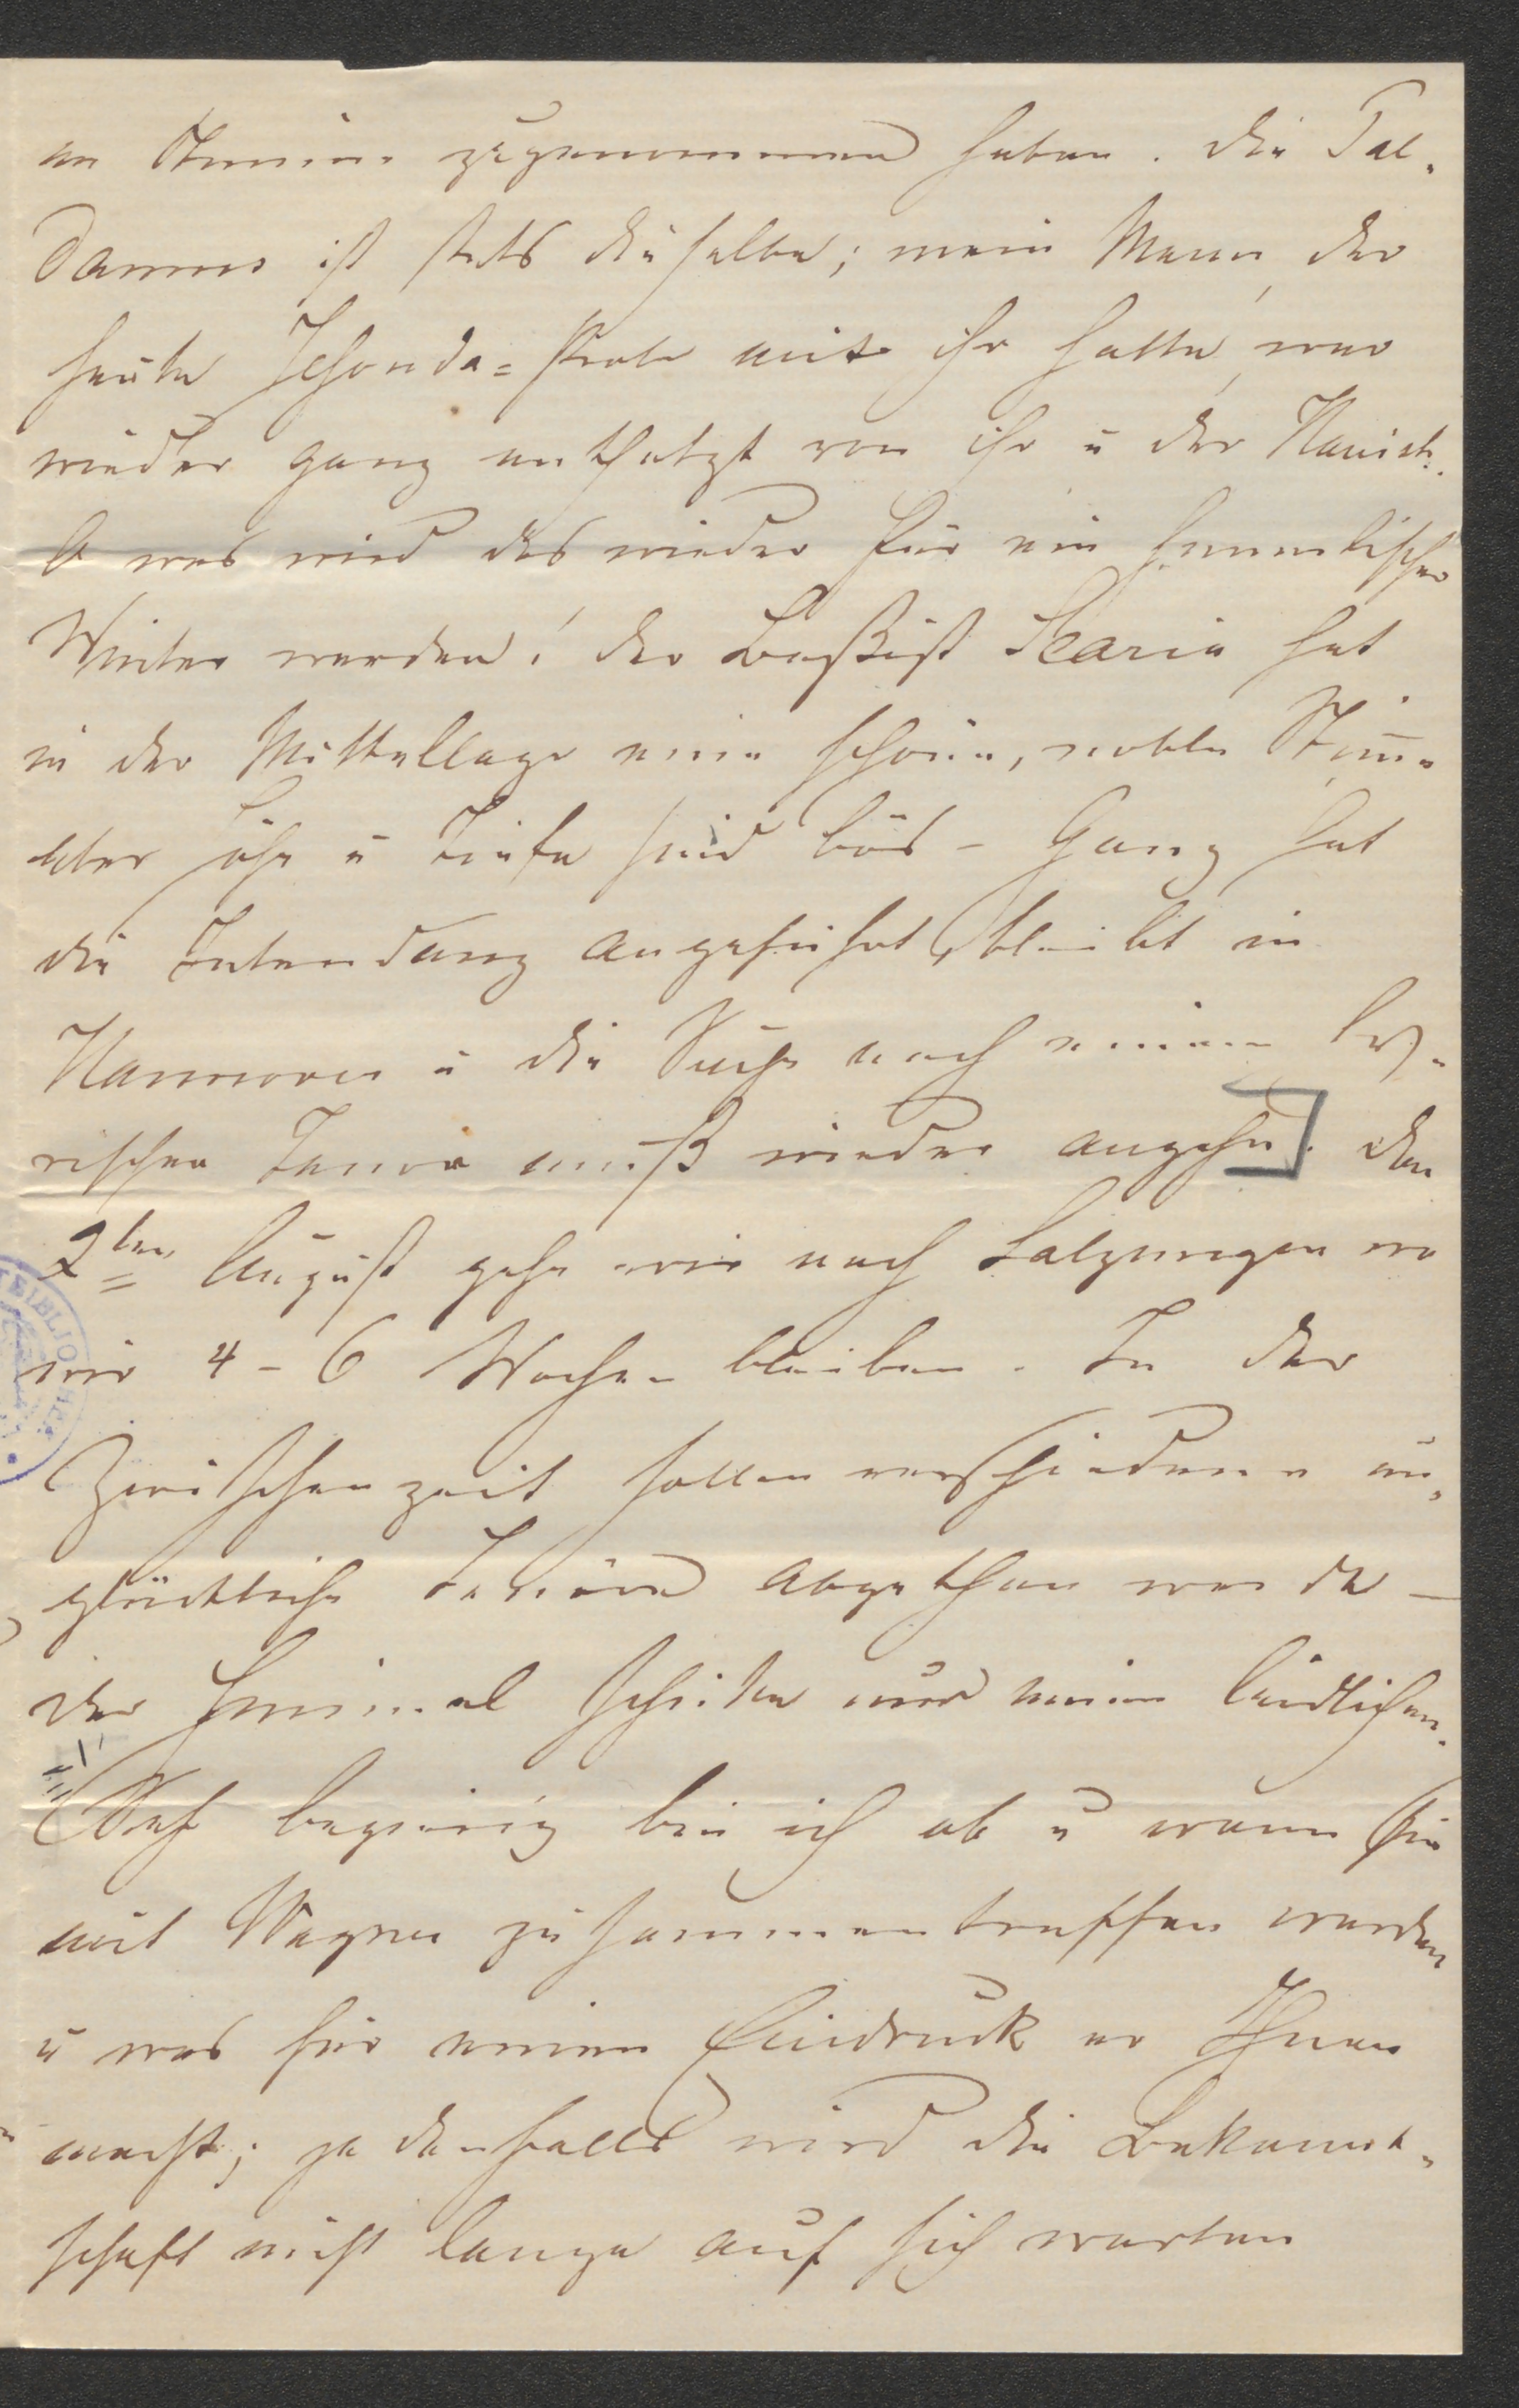 an Stimme zugenommen haben. Die Pal-
danus ist stets dieselbe; mein Mann, der
heute Jessonda-Probe mit ihr hatte, war
wieder ganz entsetzt von ihr u der Hanisch.
O was wird das wieder für ein himmlischer
Winter werden! Der Bassist Scaria hat
in der Mittellage eine schöne, noble Stimme
aber Höhe u Tiefe sind bös – Ganz hat
die Intendanz angeführt, bleibt in
Hannover u die Suche nach einem ly-
rischen Tenor muß wieder angehn. Den
2ten August gehn wir nach Salzungen wo
wir 4-6 Wochen bleiben. In der
Zwischenzeit sollen verschiedene un-
glückliche Tenöre abgethan werde –
der Himmel schicke nur einen leidlichen.
Sehr begierig bin ich ob u wann Sie
mit Wagner zusammentreffen werden
u was für einen Eindruck er Ihnen
macht; jedenfalls wird die Bekannt-
schaft nicht lange auf sich warten